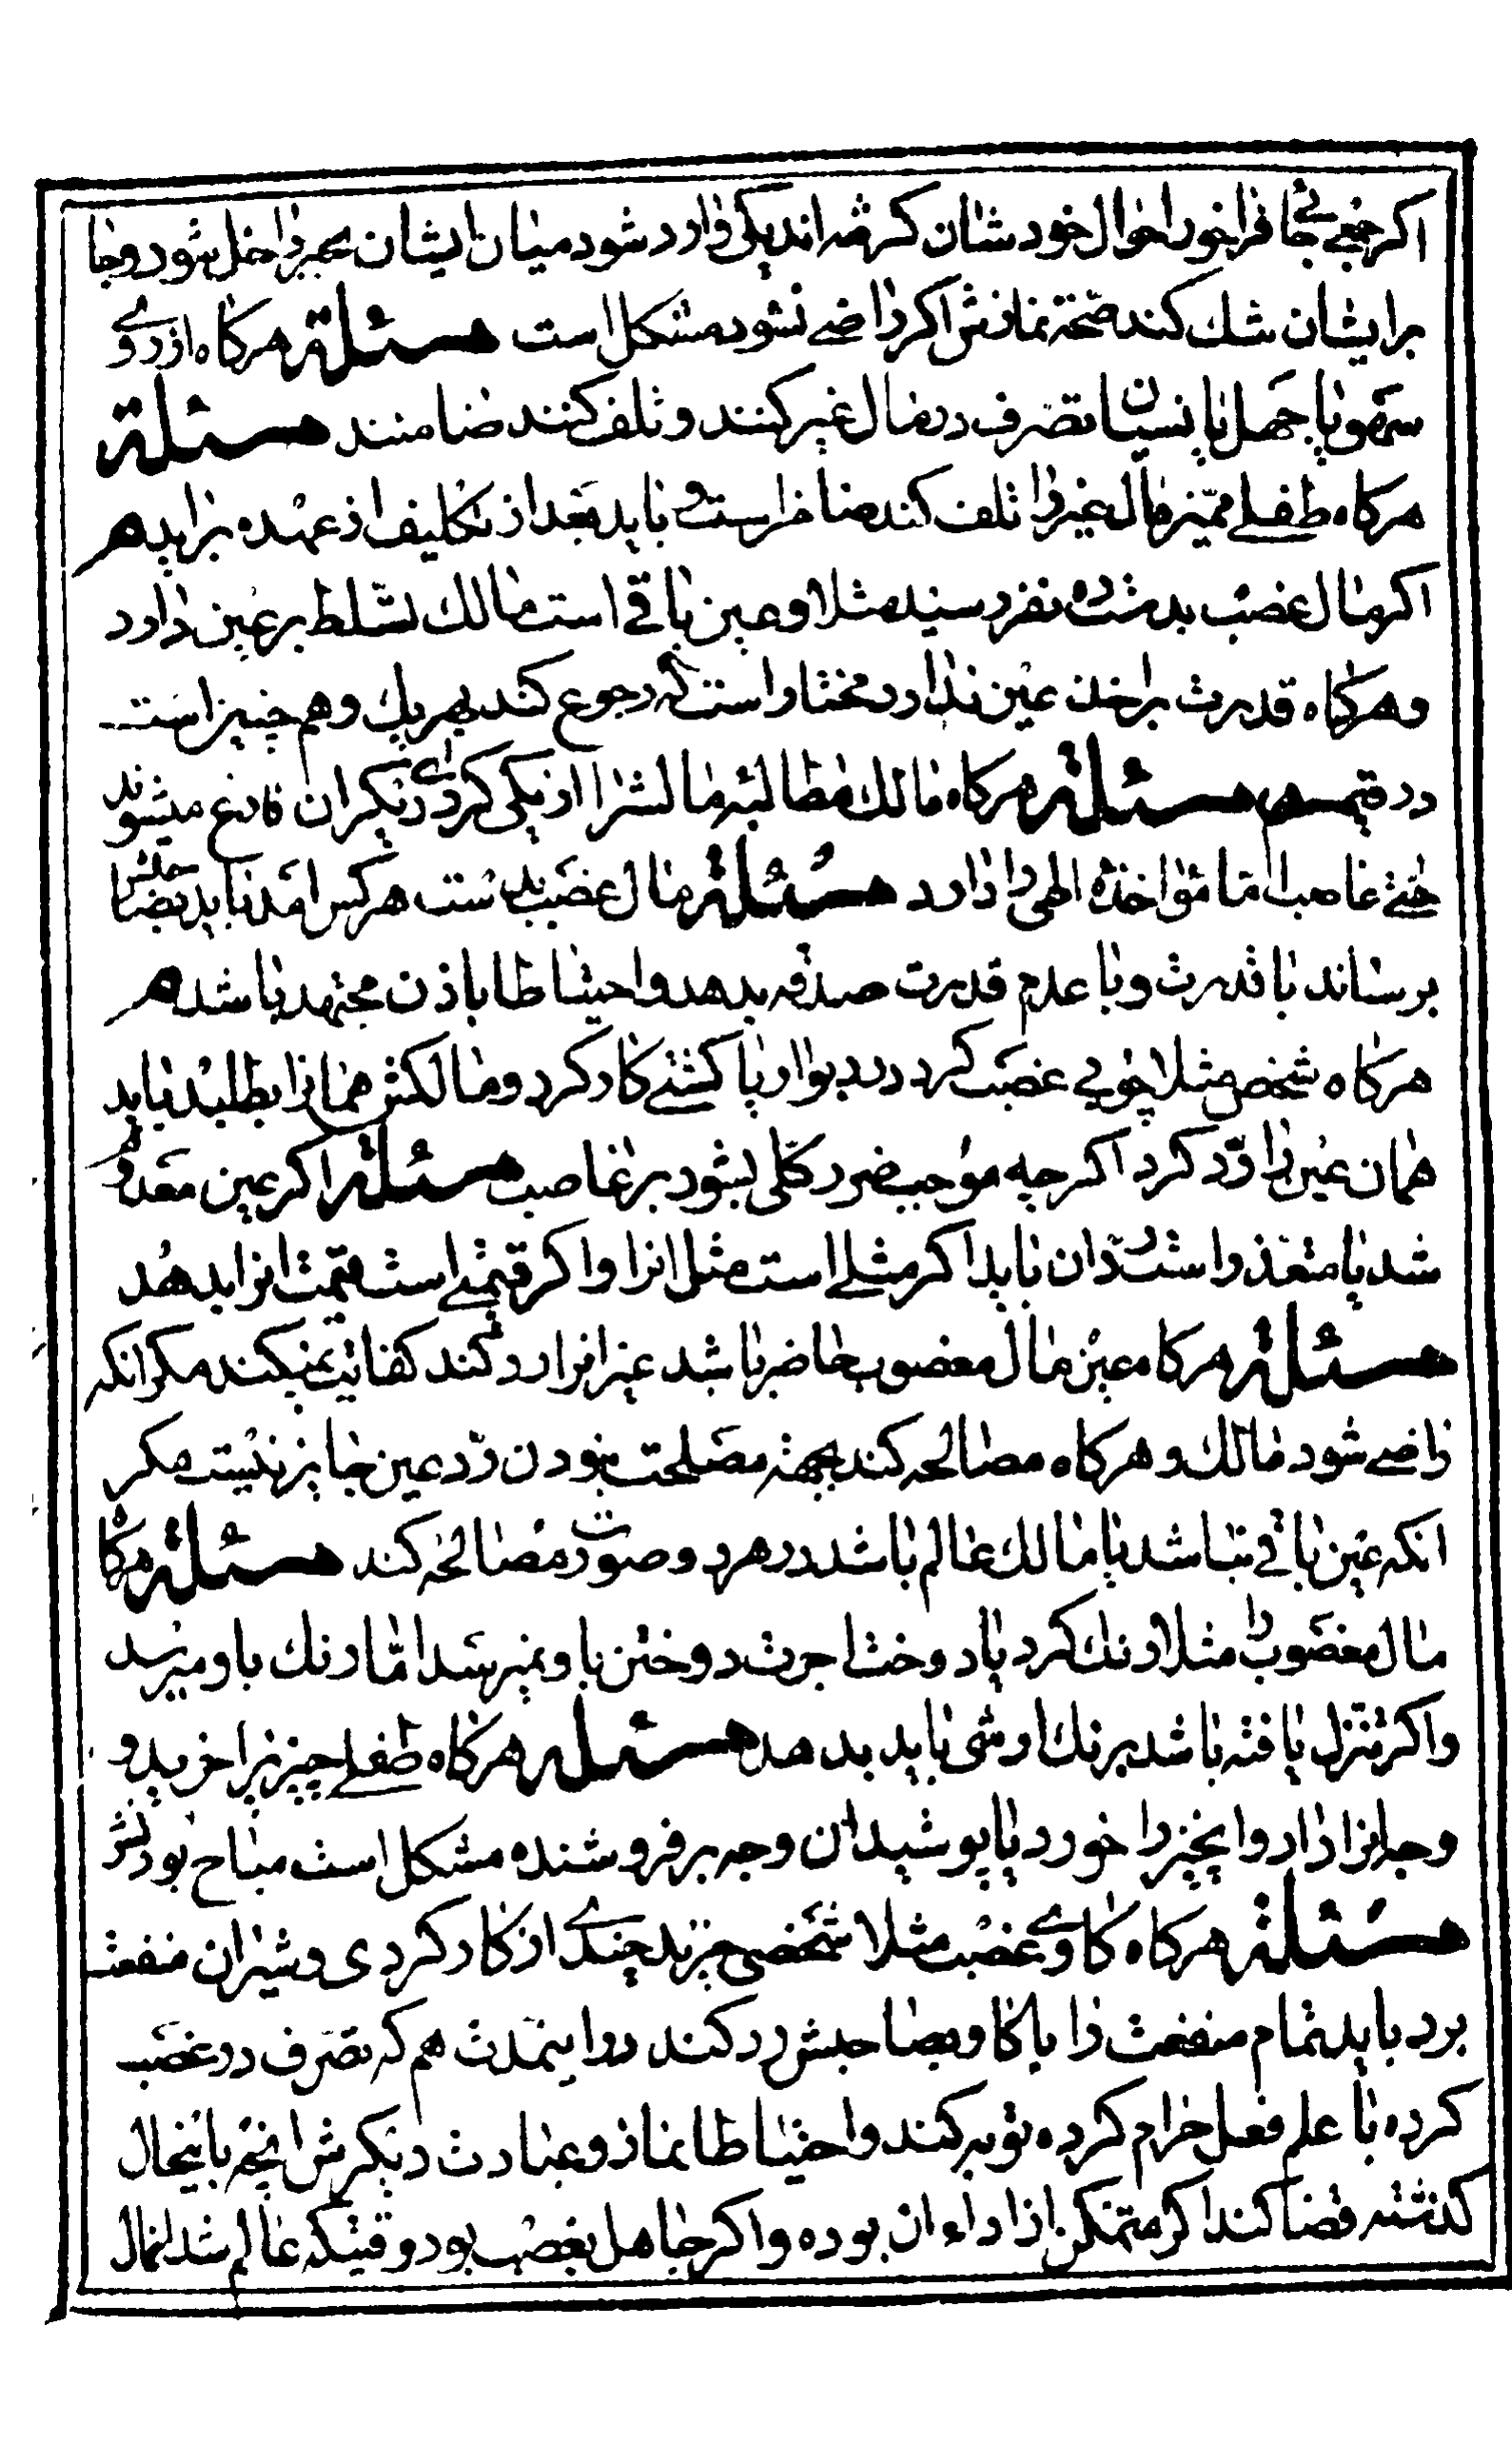 اکر جمعی جا فراخور احوال خودشان کرفته اند یکی وارد شود میان ایشان بجبر داخل شود و جا
بر ایشان شک کند صحة نمازش اکر راضی نشود مشکل است مسئلة هرکاه از روی
سهو یا جهل یا نسیان تصرف در مال غیر کنند و تلف کنند ضامنند مسئلة
هرکاه طفلی ممیز مال غیر را تلف کند ضامن است و باید بعد از تکلیف از عهده براید م
اکر مال غصب بدست ده نفر رسید مثلا و عین باقی است مالک تسلط بر عین دارد
و هرکاه قدرت بر اخذ عین ندارد مختار است که رجوع کند بهر یک و هم چنین است
در قیمت مسئلة هرکاه مالک مطالبه مالش را از یکی کرد دیکران فارغ میشوند
حتی غاصب اما مؤاخذه الهی را دارد مسئلة مال غصب بدست هرکس امد باید بصاحبش
برساند با قدرت و با عدم قدرت صدقه بدهد و احتیاطا با اذن مجتهد باشد م
هرکاه شخص مثلا چوبی غصب کرد در دیوار یا کشتی کار کرد و مالکش همانرا بطلبد باید
همان عین را رد کرد اکر چه موجب ضرر کلی بشود بر غاصب مسئلة اکر عین معدوم
شد یا متعذر است رد ان باید اکر مثلی است مثل انرا و اکر قیمتی است قیمت انرا بدهد
مسئلة هرکاه عین مال مغصوب حاضر باشد غیر انرا رد کند کفایت نمیکند مکر انکه
راضی شود مالک و هرکاه مصالحه کند بجهة مصلحت بودن رد عین جایز نیست مکر
انکه عین باقی نباشد یا مالک عالم باشد در هر دو صورت مصالحه کند مسئلة هرکاه
مال مغصوب را مثلا رنک کرد یا دوخت اجرت دوختن باو نمیرسد اما رنک باو میرسد
و اکر تنزل یافته باشد برنک ارشی باید بدهد مسئله هرکاه طفلی چیزیرا خرید و
وجه انرا داد و انچیز را خورد یا پوشید ان وجه بر فروشنده مشکل است مباح بودنش
مسئلة هرکاه کاوی غصب مثلا شخصی خرید چندی از کار کردی و شیر ان منفعت
برد باید تمام منفعت را با کاو بصاحبش رد کند و در اینمدت هم که تصرف در غصب
کرده با علم فعل حرام کرده توبه کند و احتیاطا نماز و عبادت دیکرش انچه باینحال
کذشته قضا کند اکر متمکن از اداء ان بوده و اکر جاهل بغصب بود وقتیکه عالم شد انمال